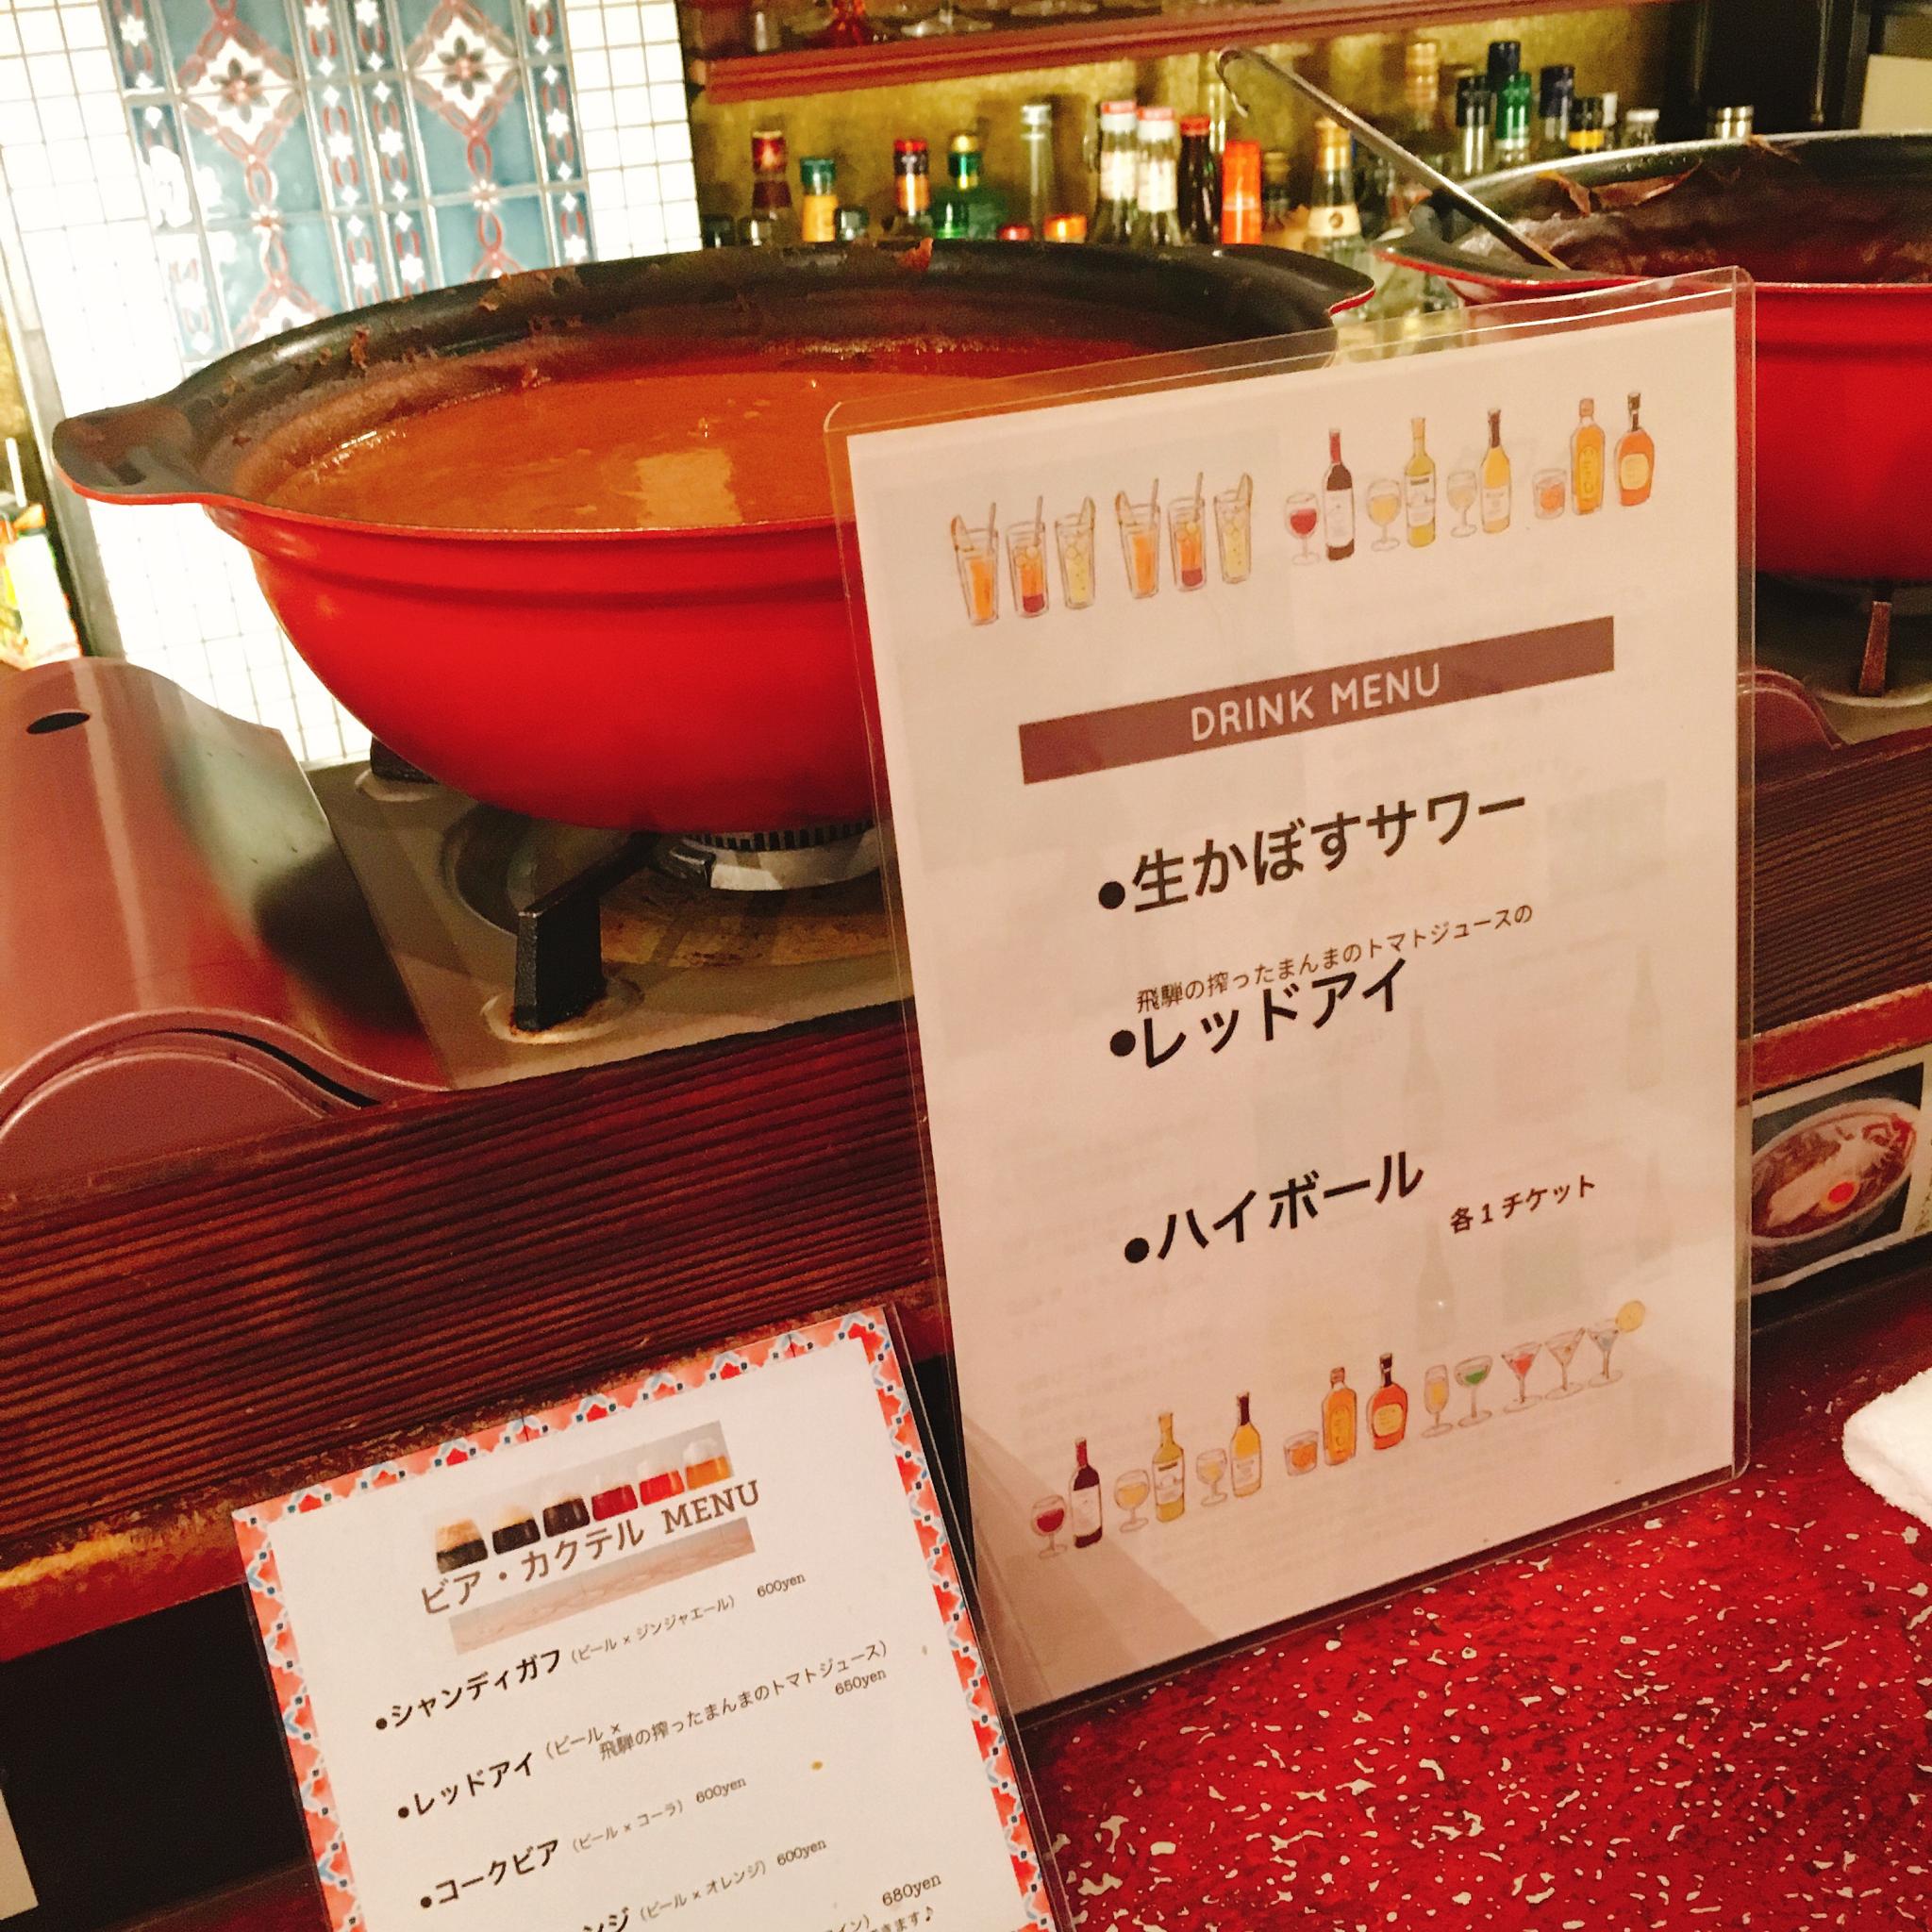 DRINK MENU
●生かぼすサワー
飛騨の搾ったまんまのトマトジュースの
●レッドアイ
●ハイボール
各1チケット
ビア・カクテル MENU
●シャンディガフ（ビール×ジンジャエール） 600yen
●レッドアイ（ビール×
飛騨の搾ったまんまのトマトジュース）
650yen
●コークビア（ビール×コーラ） 600yen
ンジ（ビール×オレンジ） 600yen
イン） 680yen
きます♪